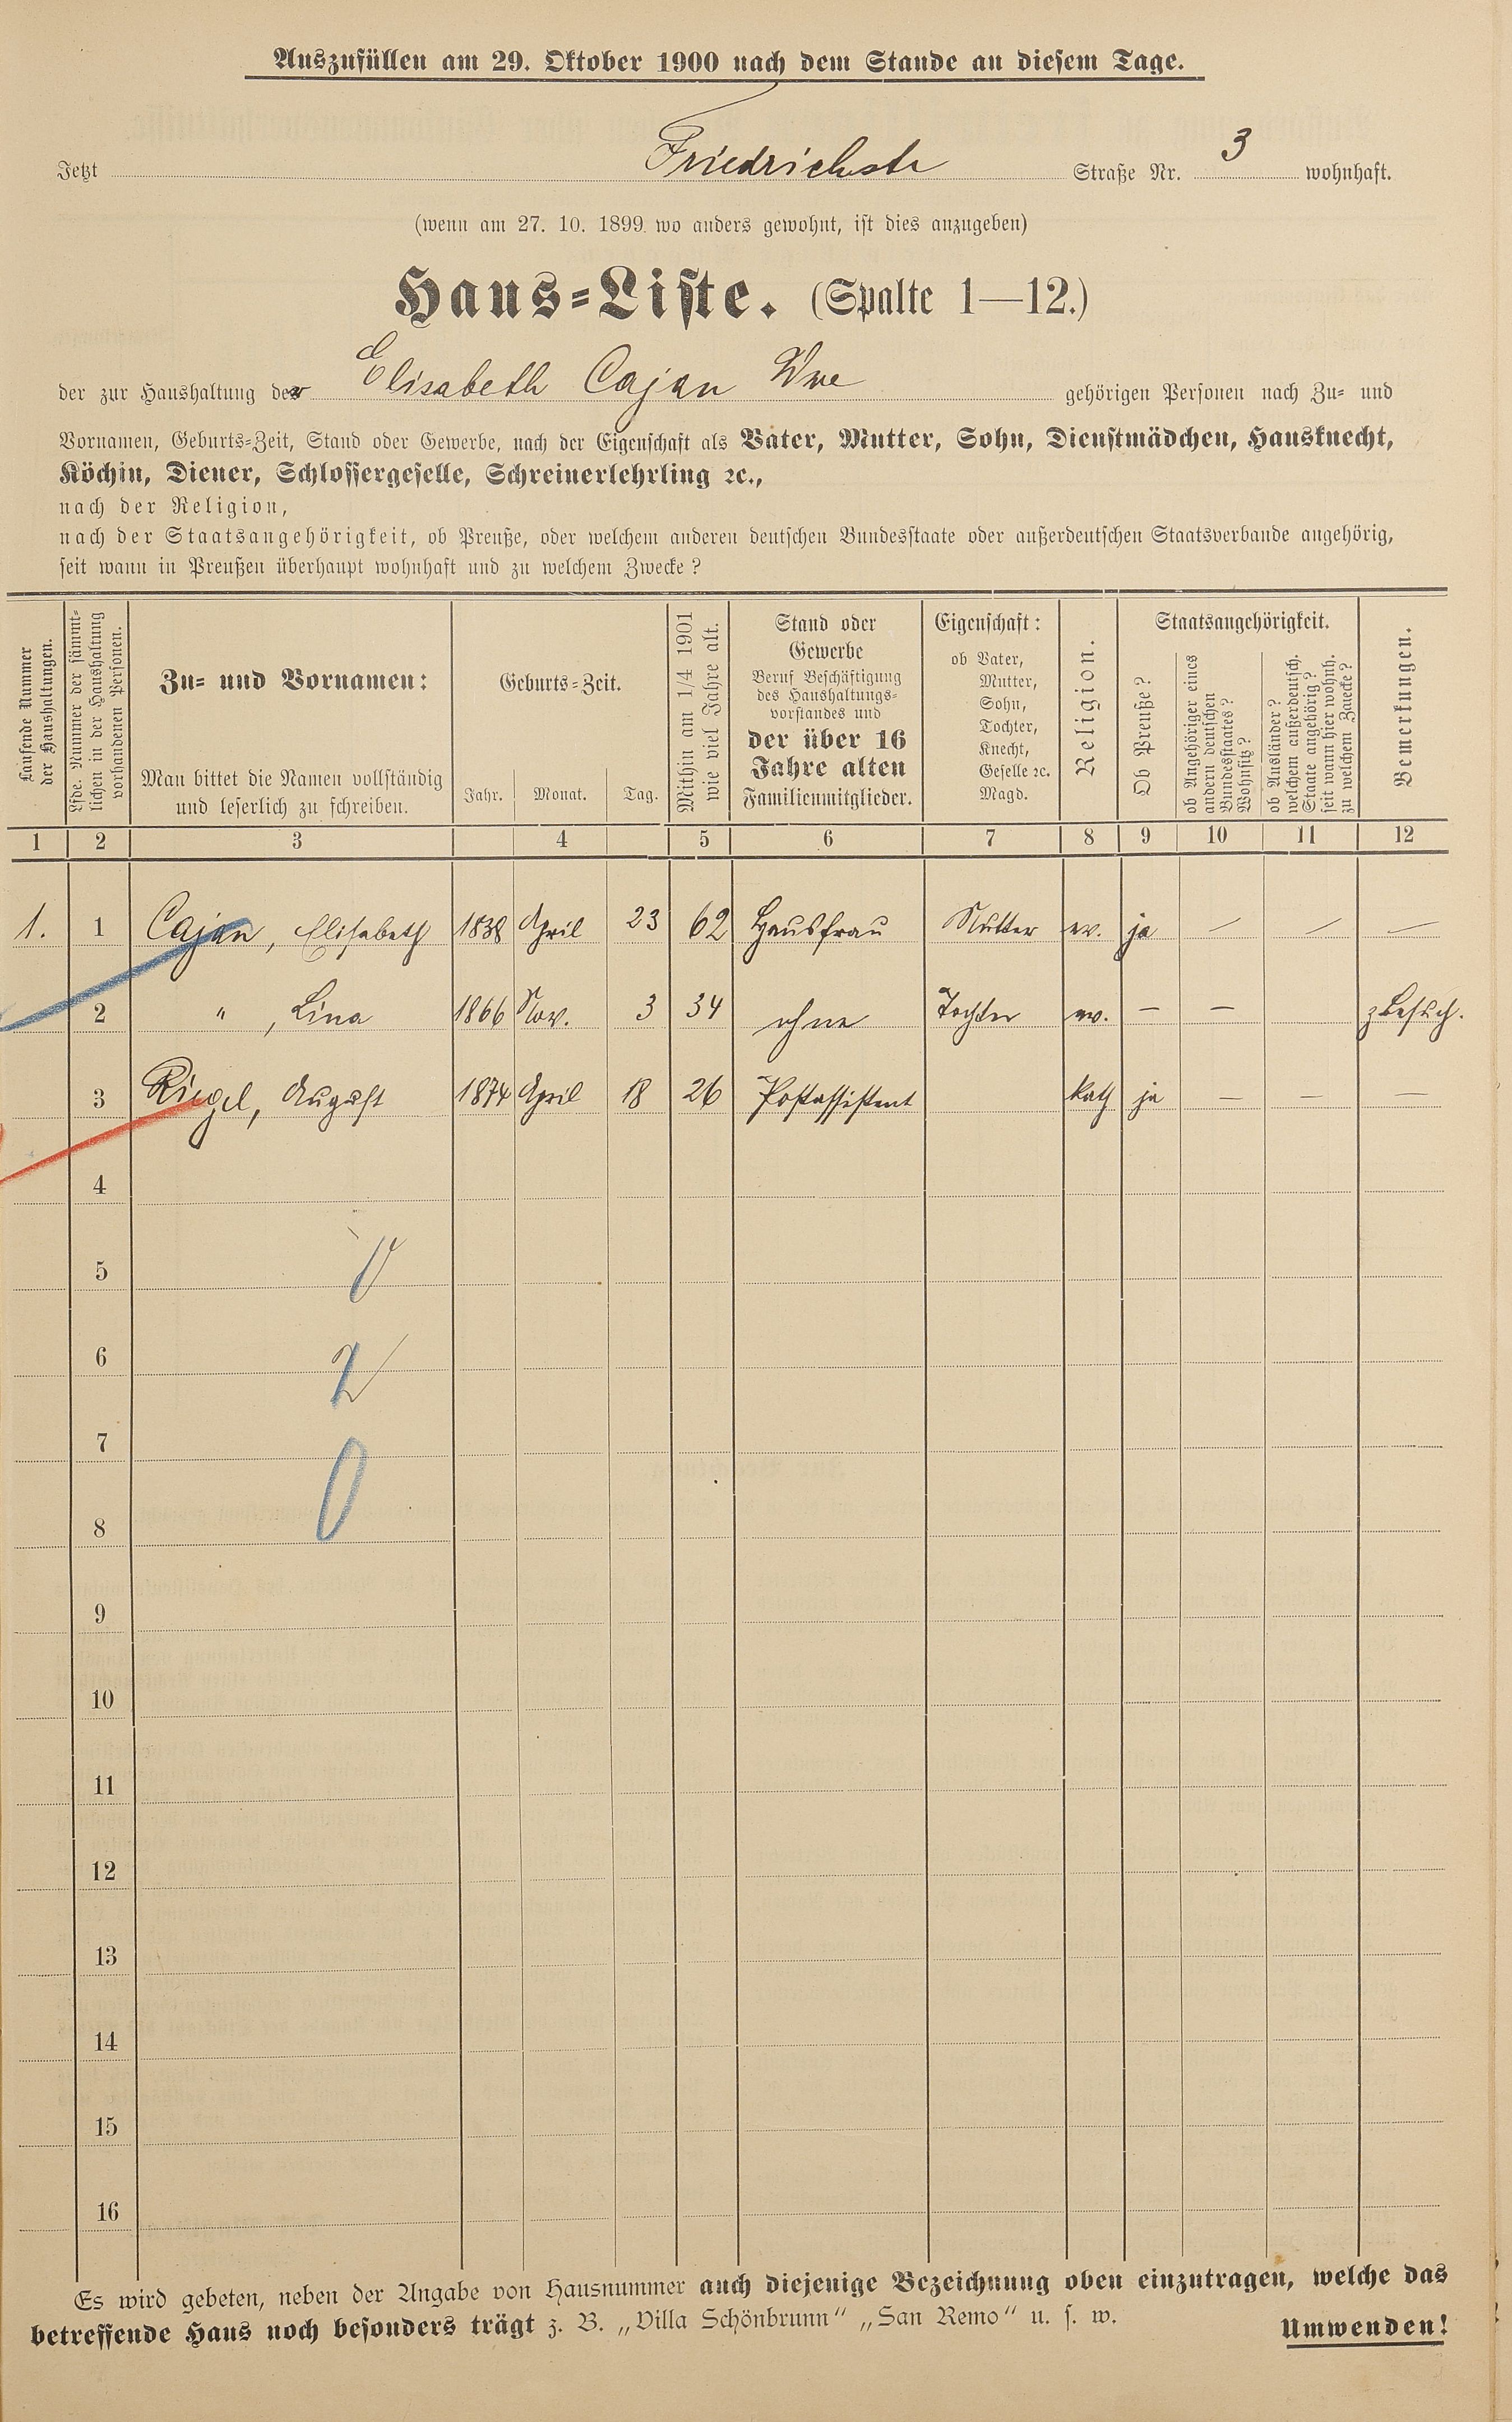 Auszufüllen am 29. Oktober 1900 nach dem Stande an diesem Tage.
Jetzt Friedrichstr Straße Nr. 3 wohnhaft.
(wenn am 27. 10. 1899 wo anders gewohnt, ist dies anzugeben)
Haus-Liste. (Spalte 1—12.)
der zur Haushaltung der Elisabeth Cajan Wwe gehörigen Personen nach Zu- und
Vornamen, Geburts-Zeit, Stand oder Gewerbe, nach der Eigenschaft als Vater, Mutter, Sohn, Dienstmädchen, Hausknecht,
Köchin, Diener, Schlossergeselle, Schreinerlehrling ꝛc.,
nach der Religion,
nach der Staatsangehörigkeit, ob Preuße, oder welchem anderen deutschen Bundesstaate oder außerdeutschen Staatsverbande angehörig,
seit wann in Preußen überhaupt wohnhaft und zu welchem Zwecke?
Laufende Nummer
der Haushaltungen.
Lfde. Nummer der sämmt-
lichen in der Haushaltung
vorhandenen Personen.
Zu- und Vornamen:
Man bittet die Namen vollständig
und leserlich zu schreiben.
Geburts-Zeit.
Jahr. Monat. Tag.
Mithin am 1/4 1901
wie viel Jahre alt.
Stand oder
Gewerbe
Beruf Beschäftigung
des Haushaltungs-
vorstandes und
der über 16
Jahre alten
Familienmitglieder.
Eigenschaft:
ob Vater,
Mutter,
Sohn,
Tochter,
Knecht,
Geselle ꝛc.
Magd.
Religion.
Staatsangehörigkeit.
Ob Preuße?
ob Angehöriger eines
andern deutschen
Bundesstaates?
Wohnsitz?
ob Ausländer?
welchem außerdeutsch.
Staate angehörig?
seit wann hier wohnh.
zu welchem Zwecke?
Bemerkungen.
1 2 3 4 5 6 7 8 9 10 11 12
1. 1 Cajan, Elisabeth 1838 April 23 62 Hausfrau Mutter ev. ja — — —
2 " , Lina 1866 Nov. 3 34 ohne Tochter ev. — — z Besuch.
3 Riegel, August 1874 April 18 26 Postassistent kath ja — — —
4
5
6
2
7
0
8
9
10
11
12
13
14
15
16
Es wird gebeten, neben der Angabe von Hausnummer auch diejenige Bezeichnung oben einzutragen, welche das
betreffende Haus noch besonders trägt z. B. „Villa Schönbrunn“ „San Remo“ u. s. w.
Umwenden!